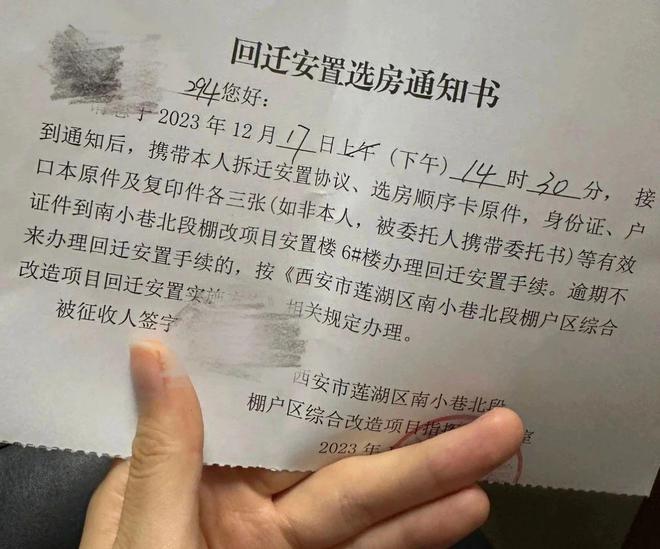 回迁安置选房通知书
294 您好:
2023年12月17日上午(下午)14时30分,接
到通知后,携带本人拆迁安置协议、选房顺序卡原件,身份证、户
口本原件及复印件各三张(如非本人,被委托人携带委托书)等有效
证件到南小巷北段棚改项目安置楼6#楼办理回迁安置手续。逾期不
来办理回迁安置手续的,按《西安市莲湖区南小巷北段棚户区综合
改造项目回迁安置实施 相关规定办理。
被征收人签字
西安市莲湖区南小巷北段
棚户区综合改造项目指挥 室
2023年